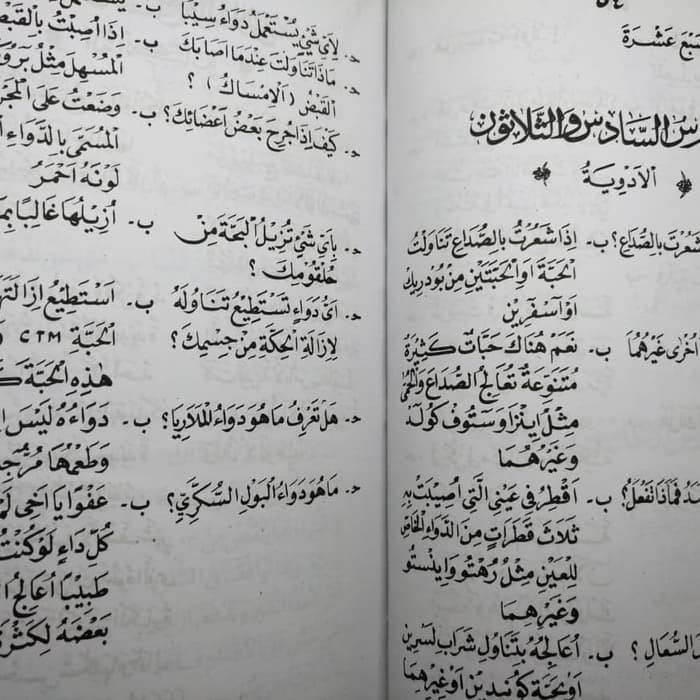 ٥٤
سَبْعَ عَشَرَةَ
الدرس السادس والثلاثون
الأَدْوِيَةُ
شَعُرْتَ بِالصُّدَاعِ؟ ب- إِذَا شَعُرْتُ بِالصُّدَاعِ تَنَاوَلْتُ
الْحَبَّةَ أَوِ الْحَبَّتَيْنِ مِنْ بُودْرِيكْ
أَوْ أَسْفِرِيْن
أُخْرَى غَيْرَهُمَا ب- نَعَمْ هُنَاكَ حَبَّاتٌ كَثِيْرَةٌ
مُتَنَوِّعَةٌ تُعَالِجُ الصُّدَاعَ وَالْحُمَّى
مِثْلُ اِينْزَا وَسْتُوفْ كُولْد
وَغَيْرِهِمَا
فَمَاذَا تَفْعَلُ؟ ب- أَقْطُرُ فِي عَيْنِي الَّتِي أُصِيْبَتْ بِهِ
ثَلَاثَ قَطَرَاتٍ مِنَ الدَّوَاءِ الْخَاصِّ
لِلْعَيْنِ مِثْلُ رُهْتُو وَاِينْسْتُو
وَغَيْرِهِمَا
السُّعَالِ؟ ب- أُعَالِجُهُ بِتَنَاوُلِ شَرَابِ
أَوْ بِحَبَّةِ كُونِيدِين أَوْ غَيْرِهِمَا
د- لِأَيِّ شَيْءٍ يُسْتَعْمَلُ دَوَاءُ ب-
د- مَاذَا تَنَاوَلْتَ عِنْدَمَا أَصَابَكَ ب- إِذَا أُصِبْتُ بِالْقَبْضِ
الْقَبْضُ (اَلْإِمْسَاكُ)؟ الْمُسْهِلَ مِثْلُ
د- كَيْفَ إِذَا جُرِحَ بَعْضُ أَعْضَائِكَ؟ ب- وَضَعْتُ عَلَى
الْمُسَمَّى بِالدَّوَاءِ
لَوْنُهُ أَحْمَرُ
د- بِأَيِّ شَيْءٍ تُزِيْلُ الْبَحَّةَ مِنْ ب- أُزِيْلُهَا غَالِبًا
حُلْقُومِكَ؟
د- أَيُّ دَوَاءٍ تَسْتَطِيْعُ تَنَاوُلَهُ ب- أَسْتَطِيْعُ إِزَالَتَهَا
لِإِزَالَةِ الْحِكَّةِ مِنْ جِسْمِكَ؟ الْحَبَّةِ CTM
هٰذِهِ الْحَبَّةَ
د- هَلْ تَعْرِفُ مَا هُوَ دَوَاءُ الْمَلَارِيَا؟ ب- دَوَاءُهُ لَيْسَ
وَطَعْمُهَا مُرٌّ
د- مَا هُوَ دَوَاءُ الْبَوْلِ السُّكَّرِيِّ؟ ب- عَفْوًا يَا أَخِي
كُلِّ دَاءٍ لَوْ كُنْتُ
طَبِيْبًا أُعَالِجُ
بَعْضَهُ